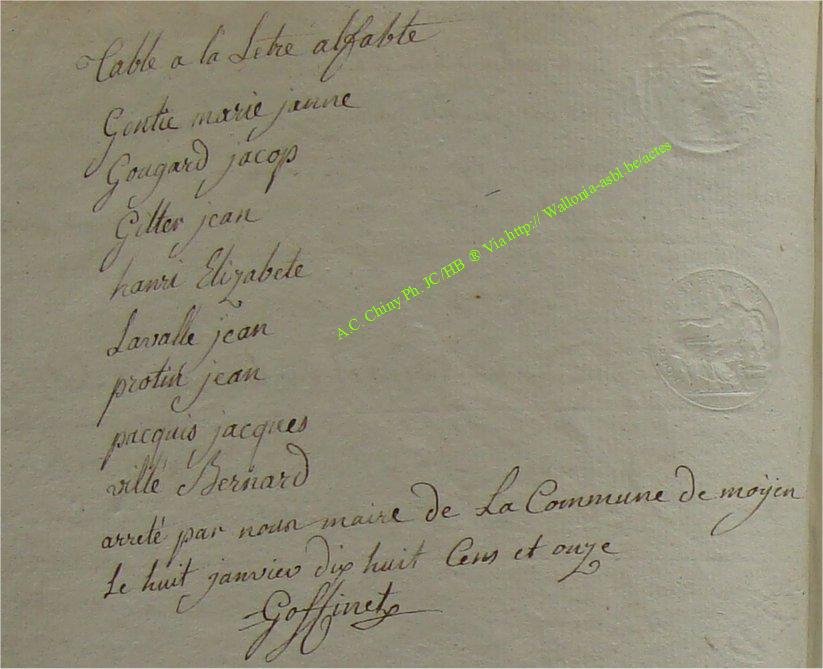 Table a la Letre alfabte
Gentie marie janne
Gougard jacop
Gitter jean
hanri Elizabete
Lavalle jean
protin jean
pacquis jacques
villé Bernard
arreté par nous maire de La Commune de moÿen
Le huit janvier dix huit Cens et onze
Goffinet
A.C. Chiny Ph. JC/HB ® Via http:// Wallonia-asbl.be/actes